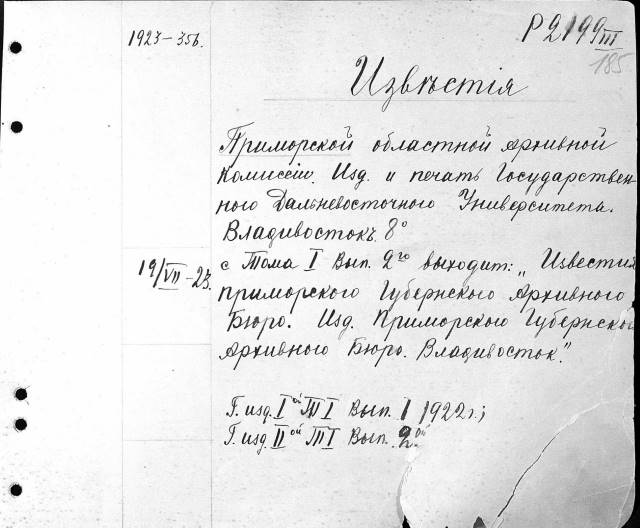 1923-356.
Р 2199 III
185
Извѣстія
Приморской областной Архивной
Комиссіи. Изд. и печать Государствен-
ного Дальневосточного Университета.
Владивостокъ 8°
19/VII-23.
с Тома I Вып. 2го выходит: „Известия
Приморского Губернского Архивного
Бюро. Изд. Приморского Губернского
Архивного Бюро. Владивосток".
Г. изд. I ой Т I Вып. 1 1922 г.;
Г. изд. II ой Т I Вып. 2ой